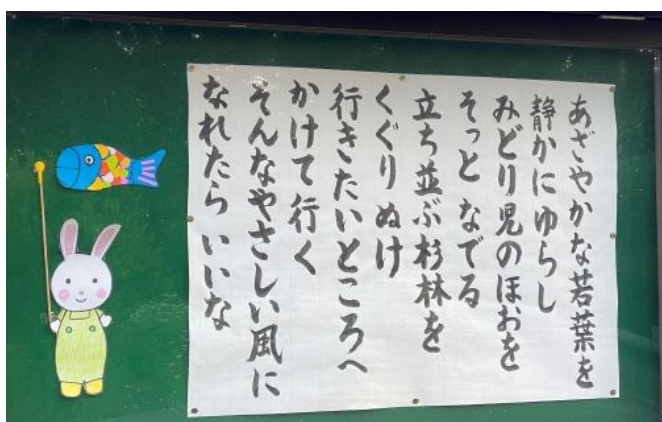 あざやかな若葉を
静かにゆらし
みどり児のほおを
そっとなでる
立ち並ぶ杉林を
くぐりぬけ
行きたいところへ
かけて行く
そんなやさしい風に
なれたらいいな